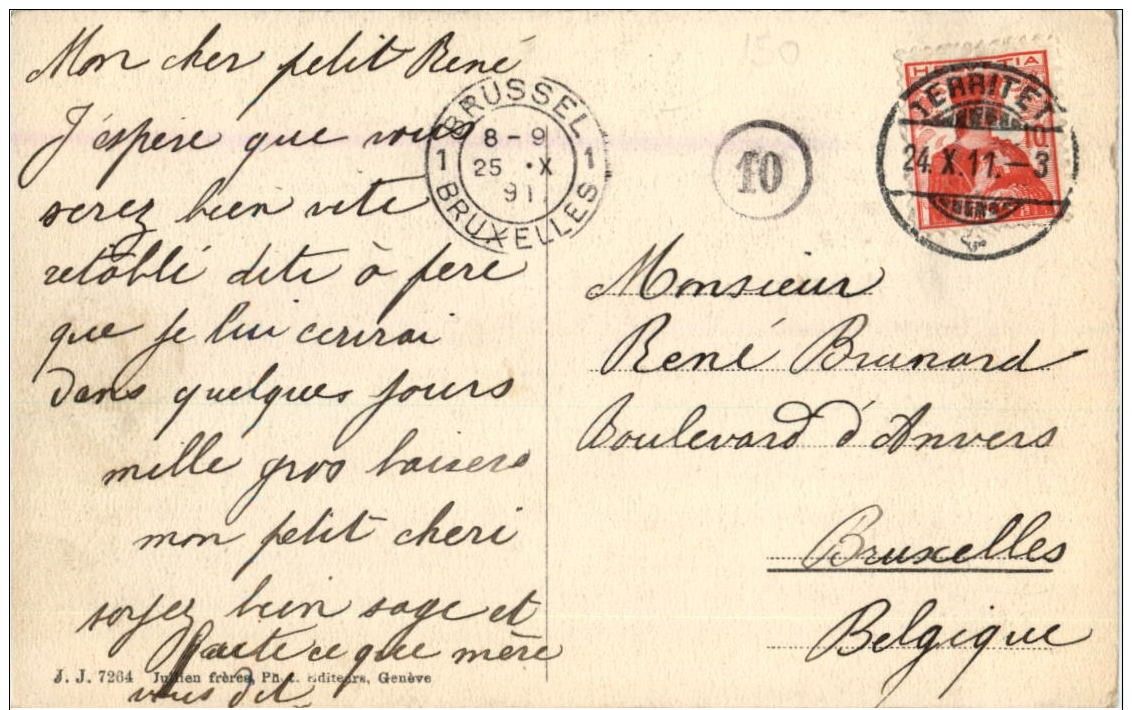 Mon cher petit René
J'espère que vous
serez bien vite
rétabli dite à père
que je lui ecrirai
dans quelques jours
mille gros baisers
mon petit cheri
soyez bien sage et
faite ce que mère
vous dit
J. J. 7264 Jullien frères, Phot. Editeurs, Genève
150
BRUSSEL
1 8-9 1
25 X
91
BRUXELLES
10
HELVETIA
10
TERRITET
24.X.11.-3
Monsieur
René Brunard
Boulevard d'Anvers
Bruxelles
Belgique